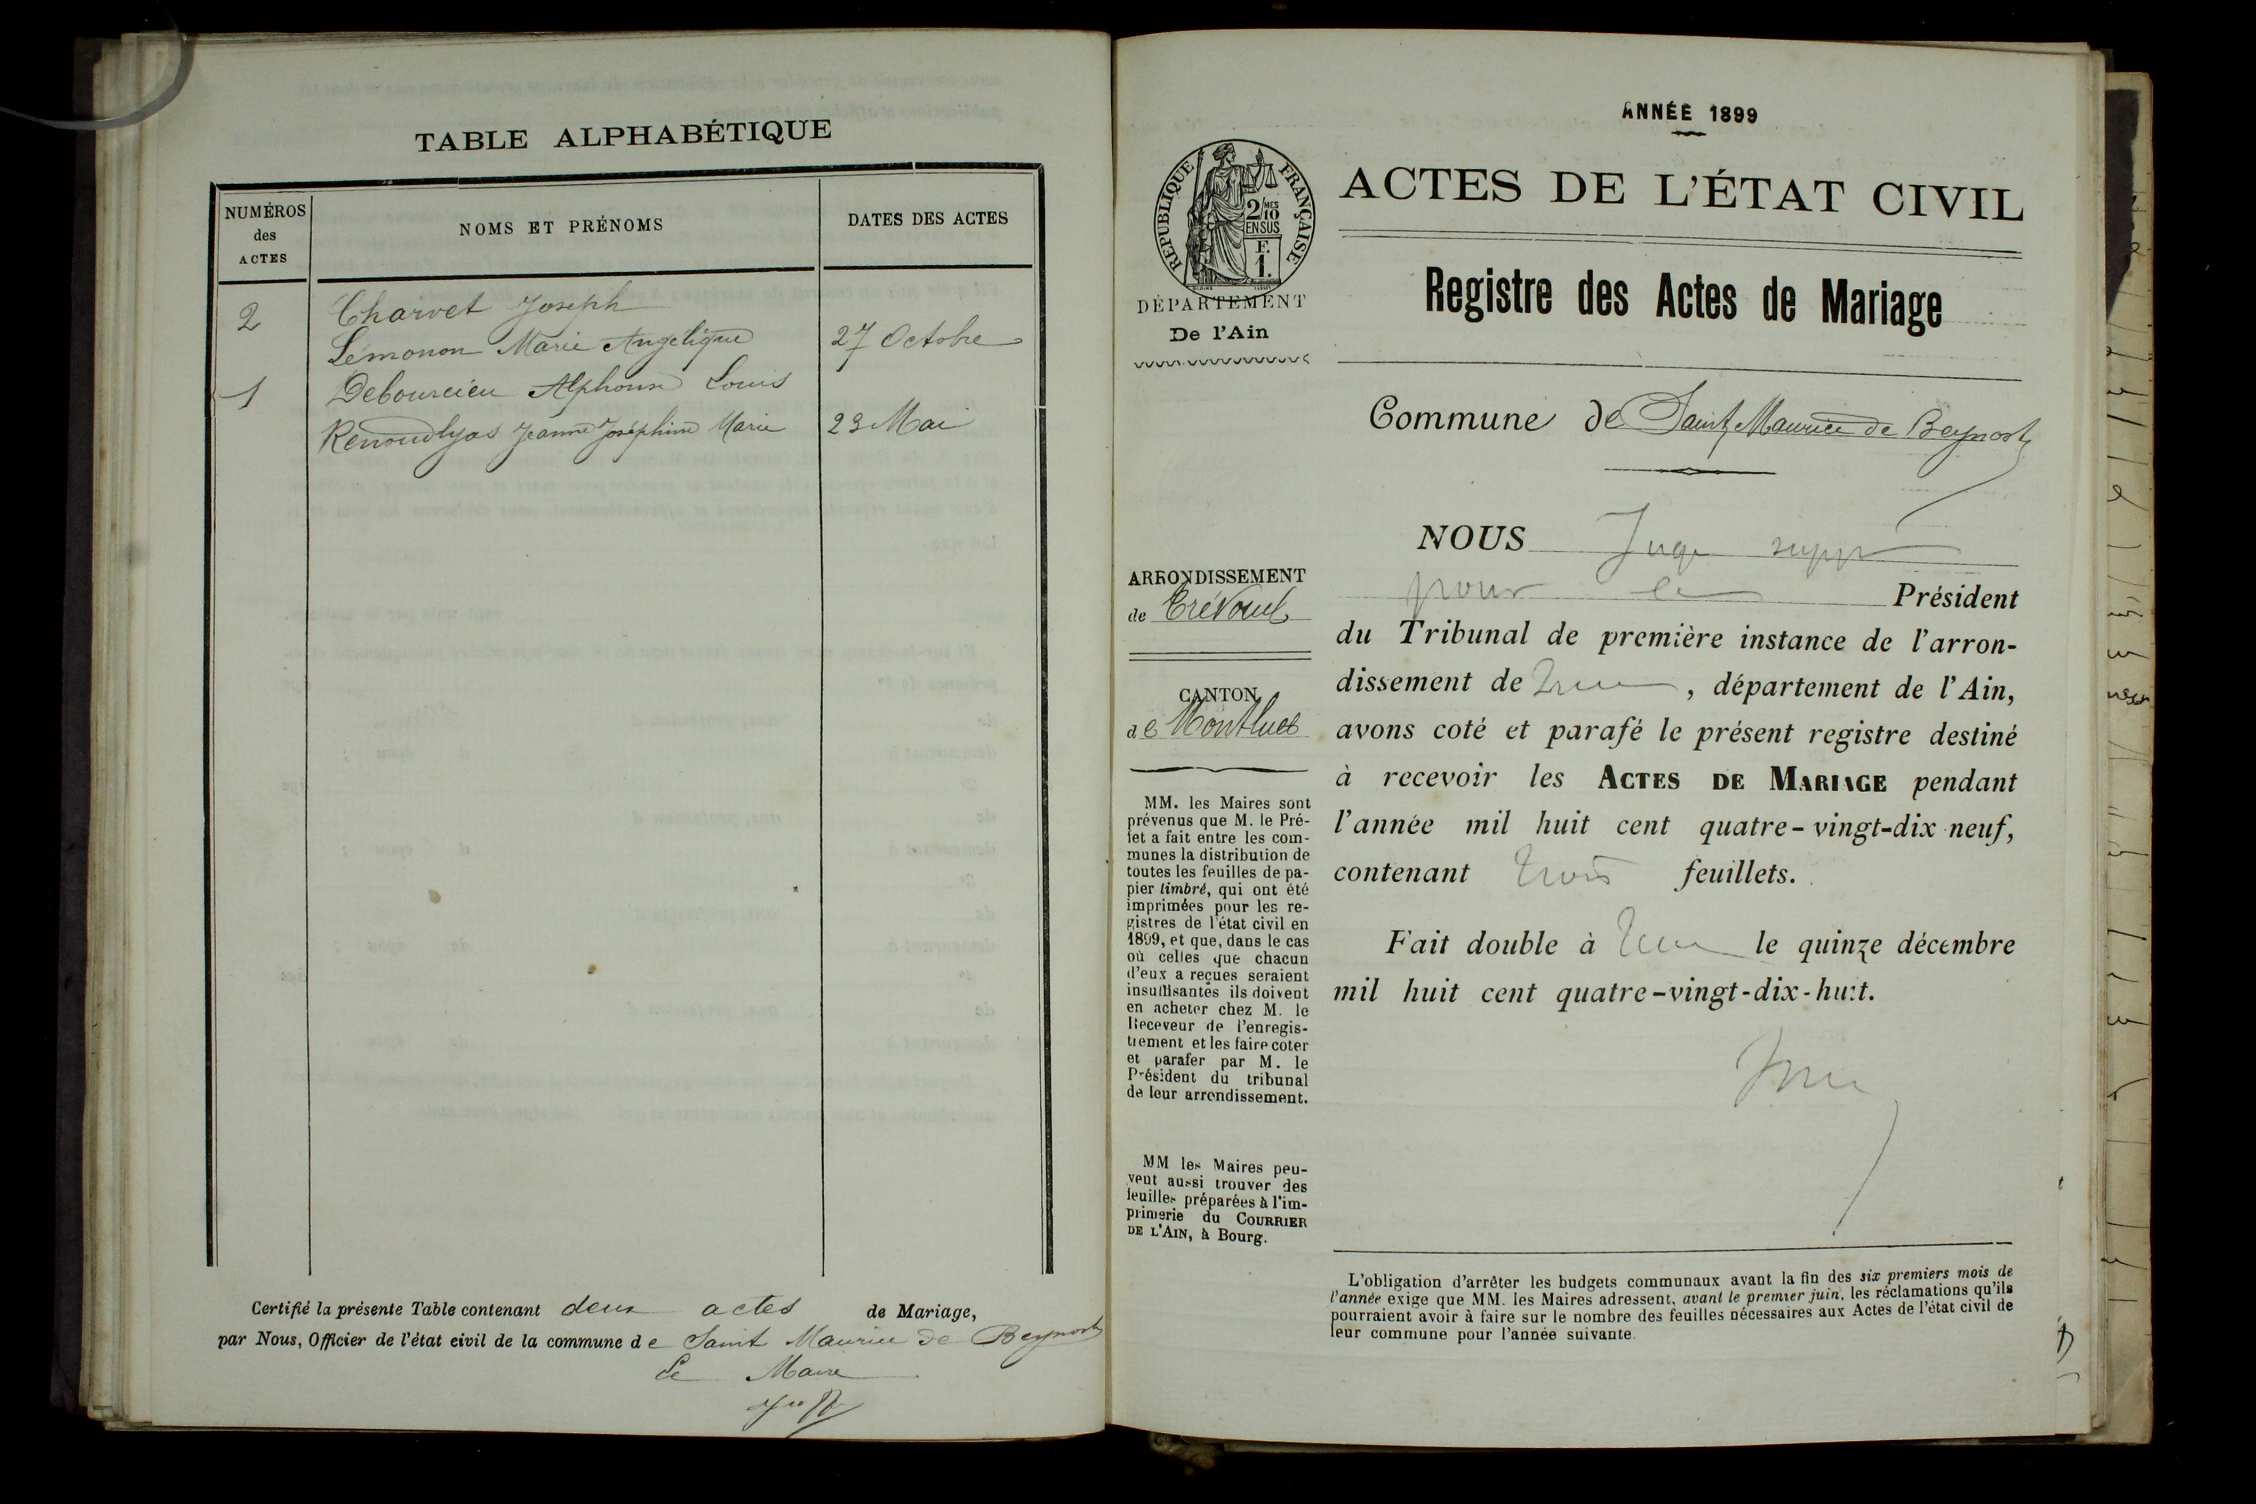 TABLE ALPHABÉTIQUE
NUMÉROS
des
ACTES
NOMS ET PRÉNOMS
DATES DES ACTES
2
Charvet Joseph
Lémonon Marie Angélique
27 Octobre
1
Debourcieu Alphonse Louis
Jeanne Joséphine Marie
23 Mai
Certifié la présente Table contenant deux actes de Mariage,
par Nous, Officier de l'état civil de la commune de Saint Maurice de Beynost
Le Maire
ANNÉE 1899
RÉPUBLIQUE FRANÇAISE
2/MES
10
EN SUS
F.
1.
DÉPARTEMENT
De l'Ain
ACTES DE L'ÉTAT CIVIL
Registre des Actes de Mariage
Commune de Saint Maurice de Beynost
ARRONDISSEMENT
de Trévoux
CANTON
de Montluel
MM. les Maires sont
prévenus que M. le Pré-
fet a fait entre les com-
munes la distribution de
toutes les feuilles de pa-
pier timbré, qui ont été
imprimées pour les re-
gistres de l'état civil en
1899, et que, dans le cas
où celles que chacun
d'eux a reçues seraient
insuffisantes ils doivent
en acheter chez M. le
Receveur de l'enregis-
trement et les faire coter
et parafer par M. le
Président du tribunal
de leur arrondissement.
MM les Maires peu-
vent aussi trouver des
feuilles préparées à l'im-
primerie du COURRIER
DE L'AIN, à Bourg.
NOUS Juge supp
pour le Président
du Tribunal de première instance de l'arron-
dissement de , département de l'Ain,
avons coté et parafé le présent registre destiné
à recevoir les ACTES DE MARIAGE pendant
l'année mil huit cent quatre-vingt-dix neuf,
contenant trois feuillets.
Fait double à le quinze décembre
mil huit cent quatre-vingt-dix-huit.
L'obligation d'arrêter les budgets communaux avant la fin des six premiers mois de
l'année exige que MM. les Maires adressent, avant le premier juin, les réclamations qu'ils
pourraient avoir à faire sur le nombre des feuilles nécessaires aux Actes de l'état civil de
leur commune pour l'année suivante.